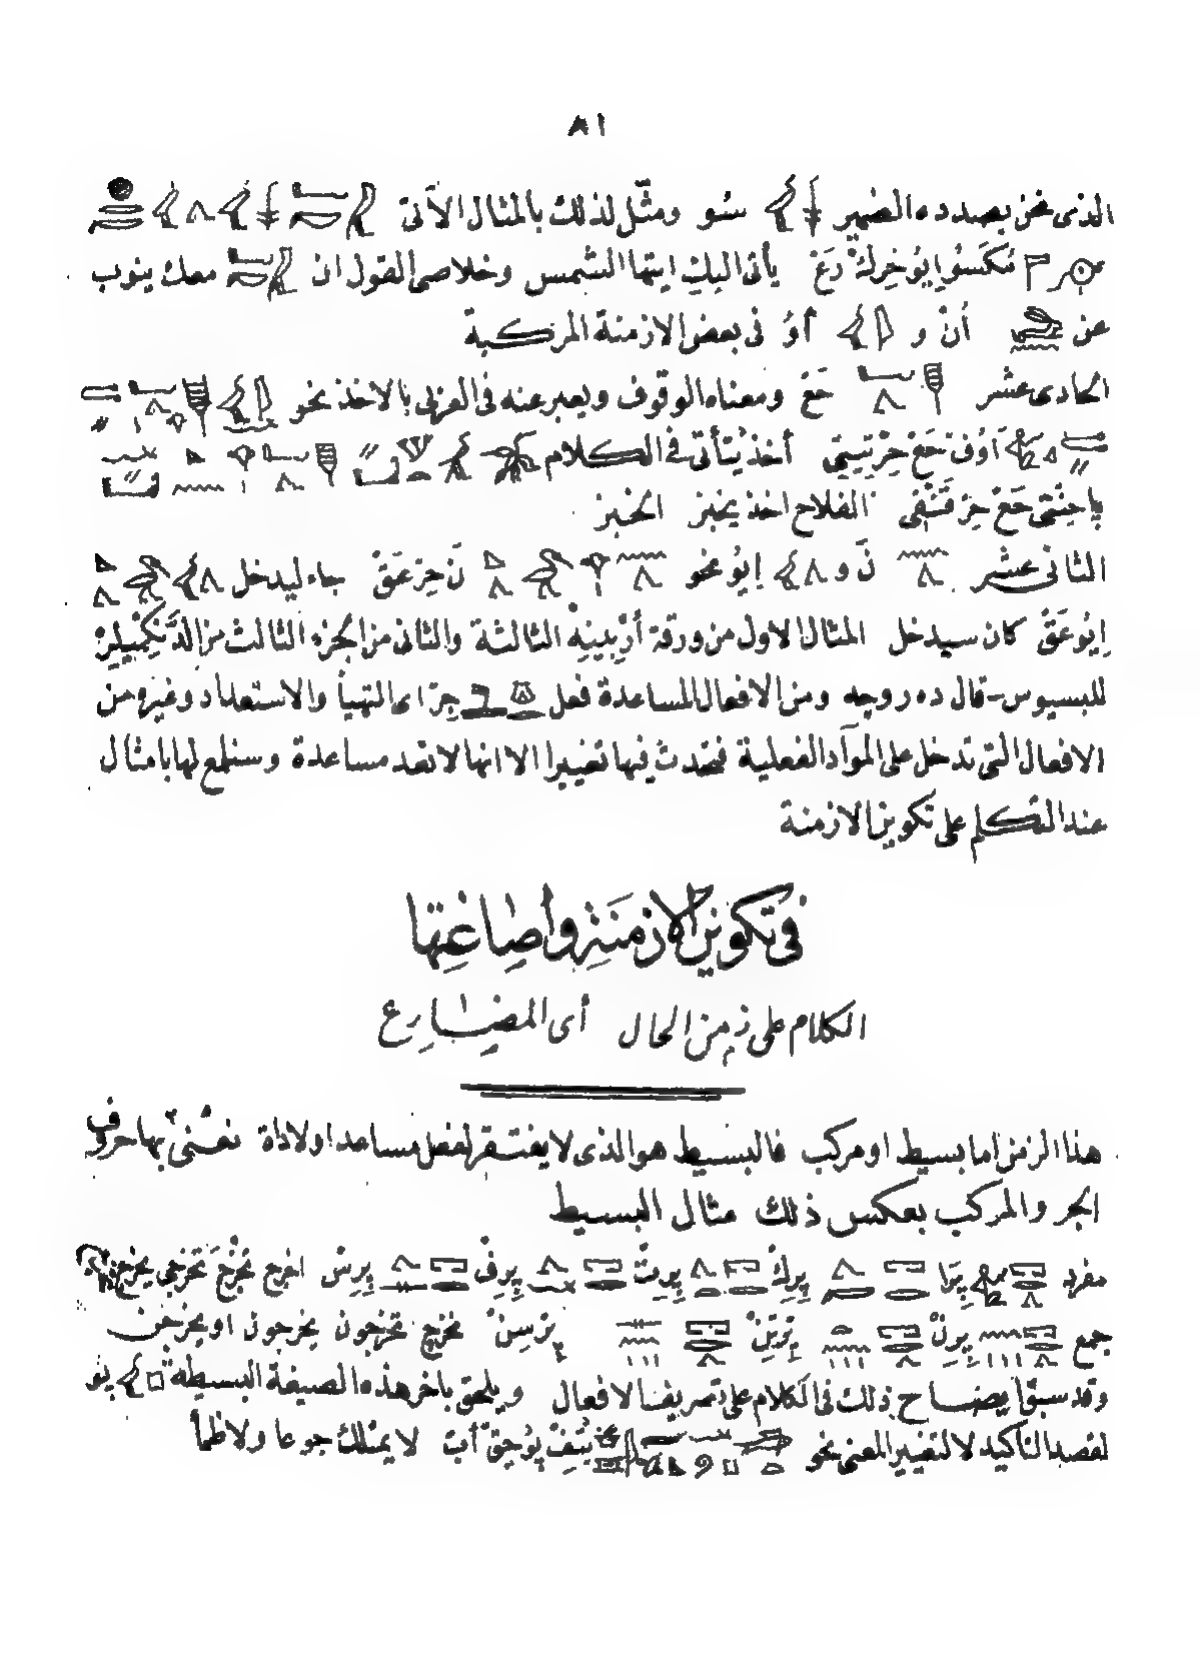 ٨١
الذى نحن بصدده الضمير سُو ومثّل لذلك بالمثال الآتى
مُكَسُو إيُو خِرك رَع يأتى اليك ايتها الشمس وخلاصى القول ان معك ينوب
عن أُنْ و أوُ فى بعض الازمنة المركبة
الحادى عشر حَعْ ومعناه الوقوف ويعبر عنه فى العربى بالاخذ نحو
أوُفْ حَعْ حِرْ أخذ يتأتى فى الكلام
حَعْ حِرْ الفلاح اخذ يخبز الخبز
الثانى عشر نَ و إيُو نحو نَ حِرعَقْ جاء ليدخل
إيُوعَقْ كان سيدخل المثال الاول من ورقة أرْبينِه الثالثة والثانى من الجزء الثالث من الدَّنكميلر
للبسيوس - قال ده روجه ومن الافعال المساعدة فعل جرْ اى التهيأ والاستعداد وغيره من
الافعال التى تدخل على الموآد الفعلية فتحدث فيها تغييرا الا انها لا تعد مساعدة وسنلمع لها بامثال
عند التكلم على تكوين الازمنة
فى تكوين الازمنة واصاغتها
الكلام على زمن الحال أى المضارع
هذا الزمن اما بسيط او مركب فالبسيط هو الذى لا يفتقر لفعل مساعد او لاداة نعنى بها حروف
الجر والمركب بعكس ذلك مثال البسيط
مفرد پِرَا پِرك پِرِتْ پِرِفْ پِرِسْ اخرج تخرج تخرجى يخرج
جمع پِرِنْ پِرْتِنْ پِرْسِنْ نخرج تخرجون يخرجون او يخرجن
وقد سبق ايضاح ذلك فى الكلام على تصريفنا الافعال ويلحق باخر هذه الصيغة البسيطه پو
لقصد التأكيد لا لتغيير المعنى نحو لا يمتلك جوعا ولا ظمأ